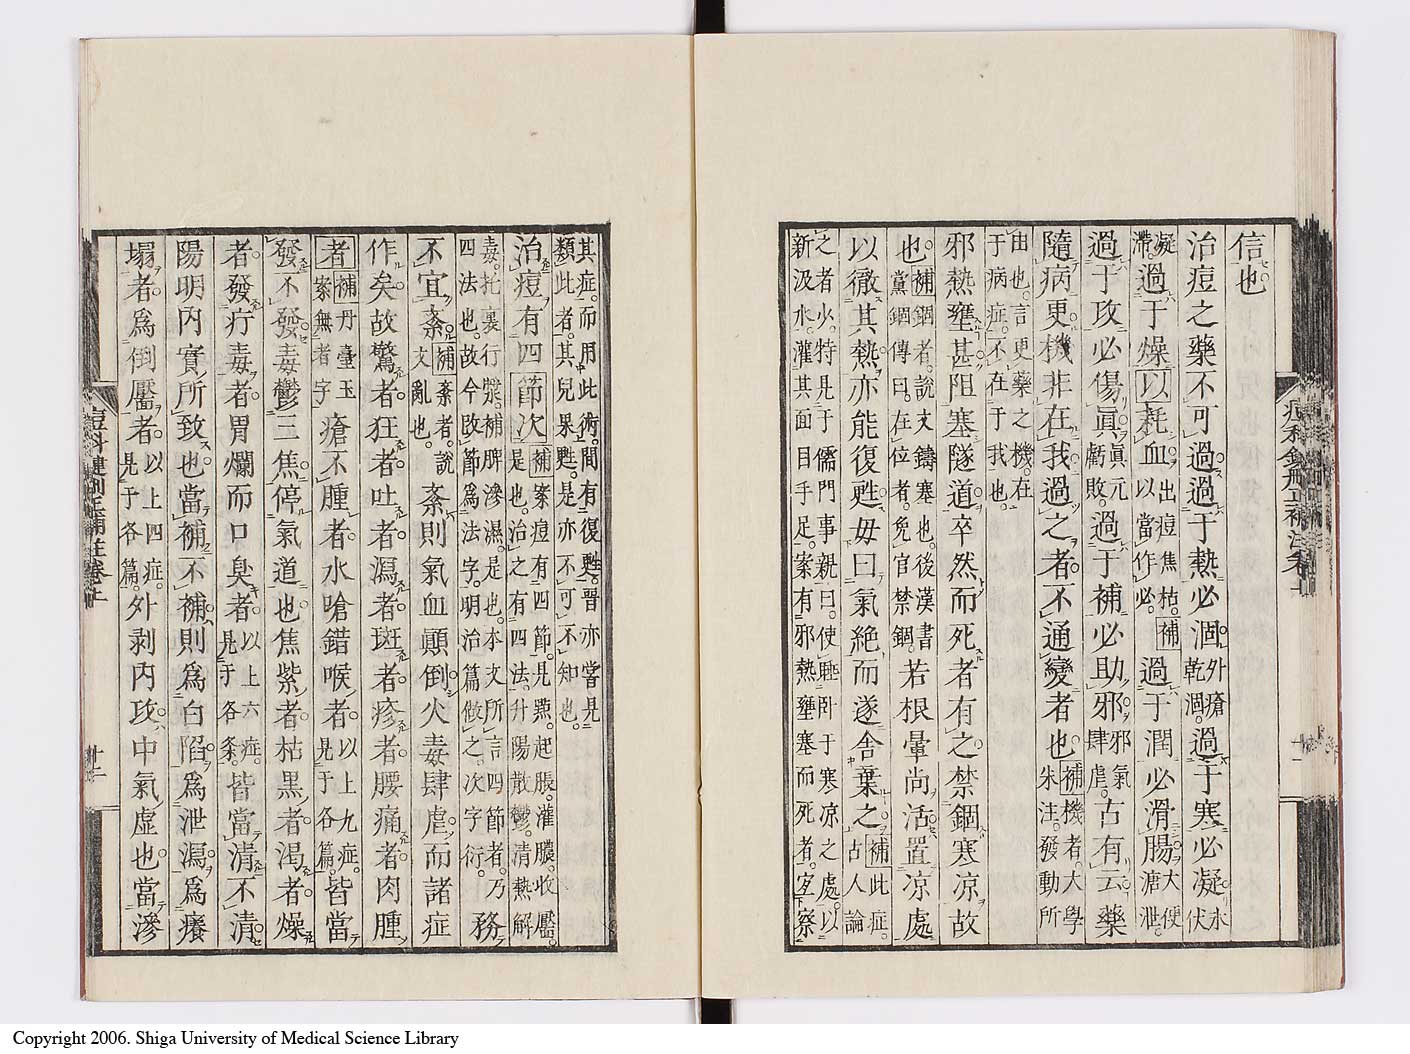 信也
治痘之藥不可過過于熱必涸外瘡乾涸。過于寒必凝氷伏
凝滯。過于燥以耗血出痘焦枯。以當作必。補過于潤必滑腸大便溏泄。
過于攻必傷眞眞元虧敗。過于補必助邪邪氣肆虐。古有云藥
隨病更機非在我過之者不通變者也補機者。大學朱注。發動所
由也。言更藥之機。在于病症。不在于我也。
邪熱壅甚阻塞隧道卒然而死者有之禁錮寒凉故
也。補錮者。說文鑄塞也。後漢書黨錮傳曰。在位者。免官禁錮。若根暈尚活置凉處
以徹其熱亦能復甦毋曰氣絶而遂舎棄之補此症。古人論
之者少。特見于儒門事親曰。使臥于寒凉之處。以新汲水。灌其面目手足。案有邪熱壅塞而死者。宻察
其症。而用此術。間有復甦。晋亦嘗見類此者。其兒果甦。是亦不可不知也。
治痘有四節次補案痘有四節。見㷸。起脹。灌膿。收靨。是也。治之有四法。升陽散鬱。清熱解
毒。托裏行漿。補脾滲濕。是也。本文所言四節者。乃四法也。故今改節爲法字。明治篇倣之。次字衍。務
不宜紊補紊者。說文亂也。紊則氣血顚倒火毒肆虐而諸症
作矣故驚者狂者吐者瀉者斑者疹者腰痛者肉腫
者補丹臺玉案無者字瘡不腫者水嗆錯喉者以上九症。見于各篇。皆當
發不發毒鬱三焦停氣道也焦紫者枯黒者渴者燥
者發疔毒者胃爛而口臭者以上六症。見于各条。皆當清不清
陽明内實所致也當補不補則爲白陷爲泄瀉爲癢
塌者爲倒靨者以上四症。見于各篇。外剥内攻中氣虚也當滲
痘科鍵刪正補註卷上
十二
Copyright 2006. Shiga University of Medical Science Library